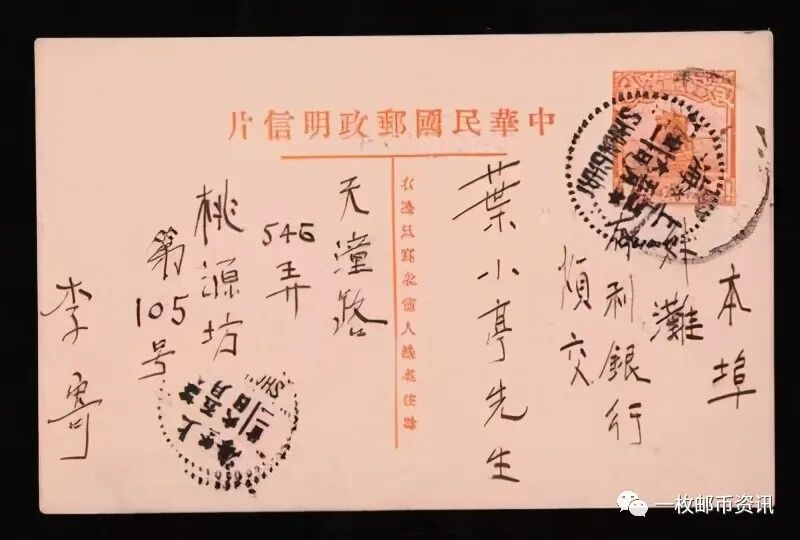 中華民國郵政明信片
本埠
灘
利銀行
煩交
葉小亭先生
只寫收信人姓名住址
天潼路
546弄
桃源坊
第105号
李寄
SHANGHAI
上海
一枚邮币资讯